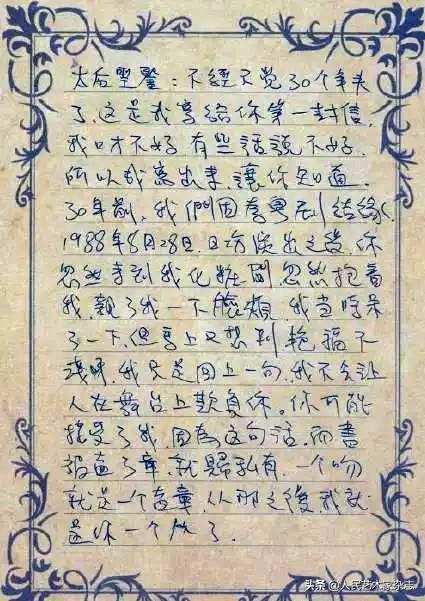 太后聖鑒：不經不覺30个年头
了，这是我寫给你第一封信，
我口才不好 有些话说不好，
所以我寫出来，讓你知道，
30年前，我们因李粤剧结緣，
1988年8月28日，日场演出之後，你
忽然走到我化粧間忽然抱着
我，親了我一下臉頰，我当時呆
了一下，但馬上又想到，艳福不
淺啊，我只是回上一句，我不会让
人在舞台上欺負你。你可能
接受了我，因为这句话，而書
都盖了章，就歸私有，一个吻
就是一个盖章，从那之後，我就
是你一个的了。
头条@人民艺术家杂志